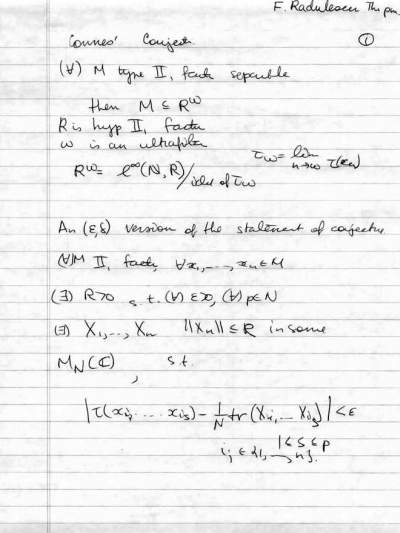 F. Radulescu Th pm.
①
Connes' Conject
(∀) M type II, factor separable
then M ⊆ R^ω
R is hyp II, factor
ω is an ultrafilter
R^ω = ℓ^∞(N, R)/ideal of τ_ω
τ_ω = lim_{n→ω} τ(x_n)
An (ε,δ) version of the statement of conjecture
(∀) M II, factor, ∀x_1, ..., x_n ∈ M
(∃) R>0 s.t. (∀) ε>0, (∀) p∈N
(∃) X_1, ..., X_n ||X_n|| ≤ R in some
M_N(C), s.t.
|τ(x_{i_1} ... x_{i_s}) - 1/N tr(X_{i_1} ... X_{i_s})| < ε
1 ≤ s ≤ p
i_j ∈ {1, ..., n}.